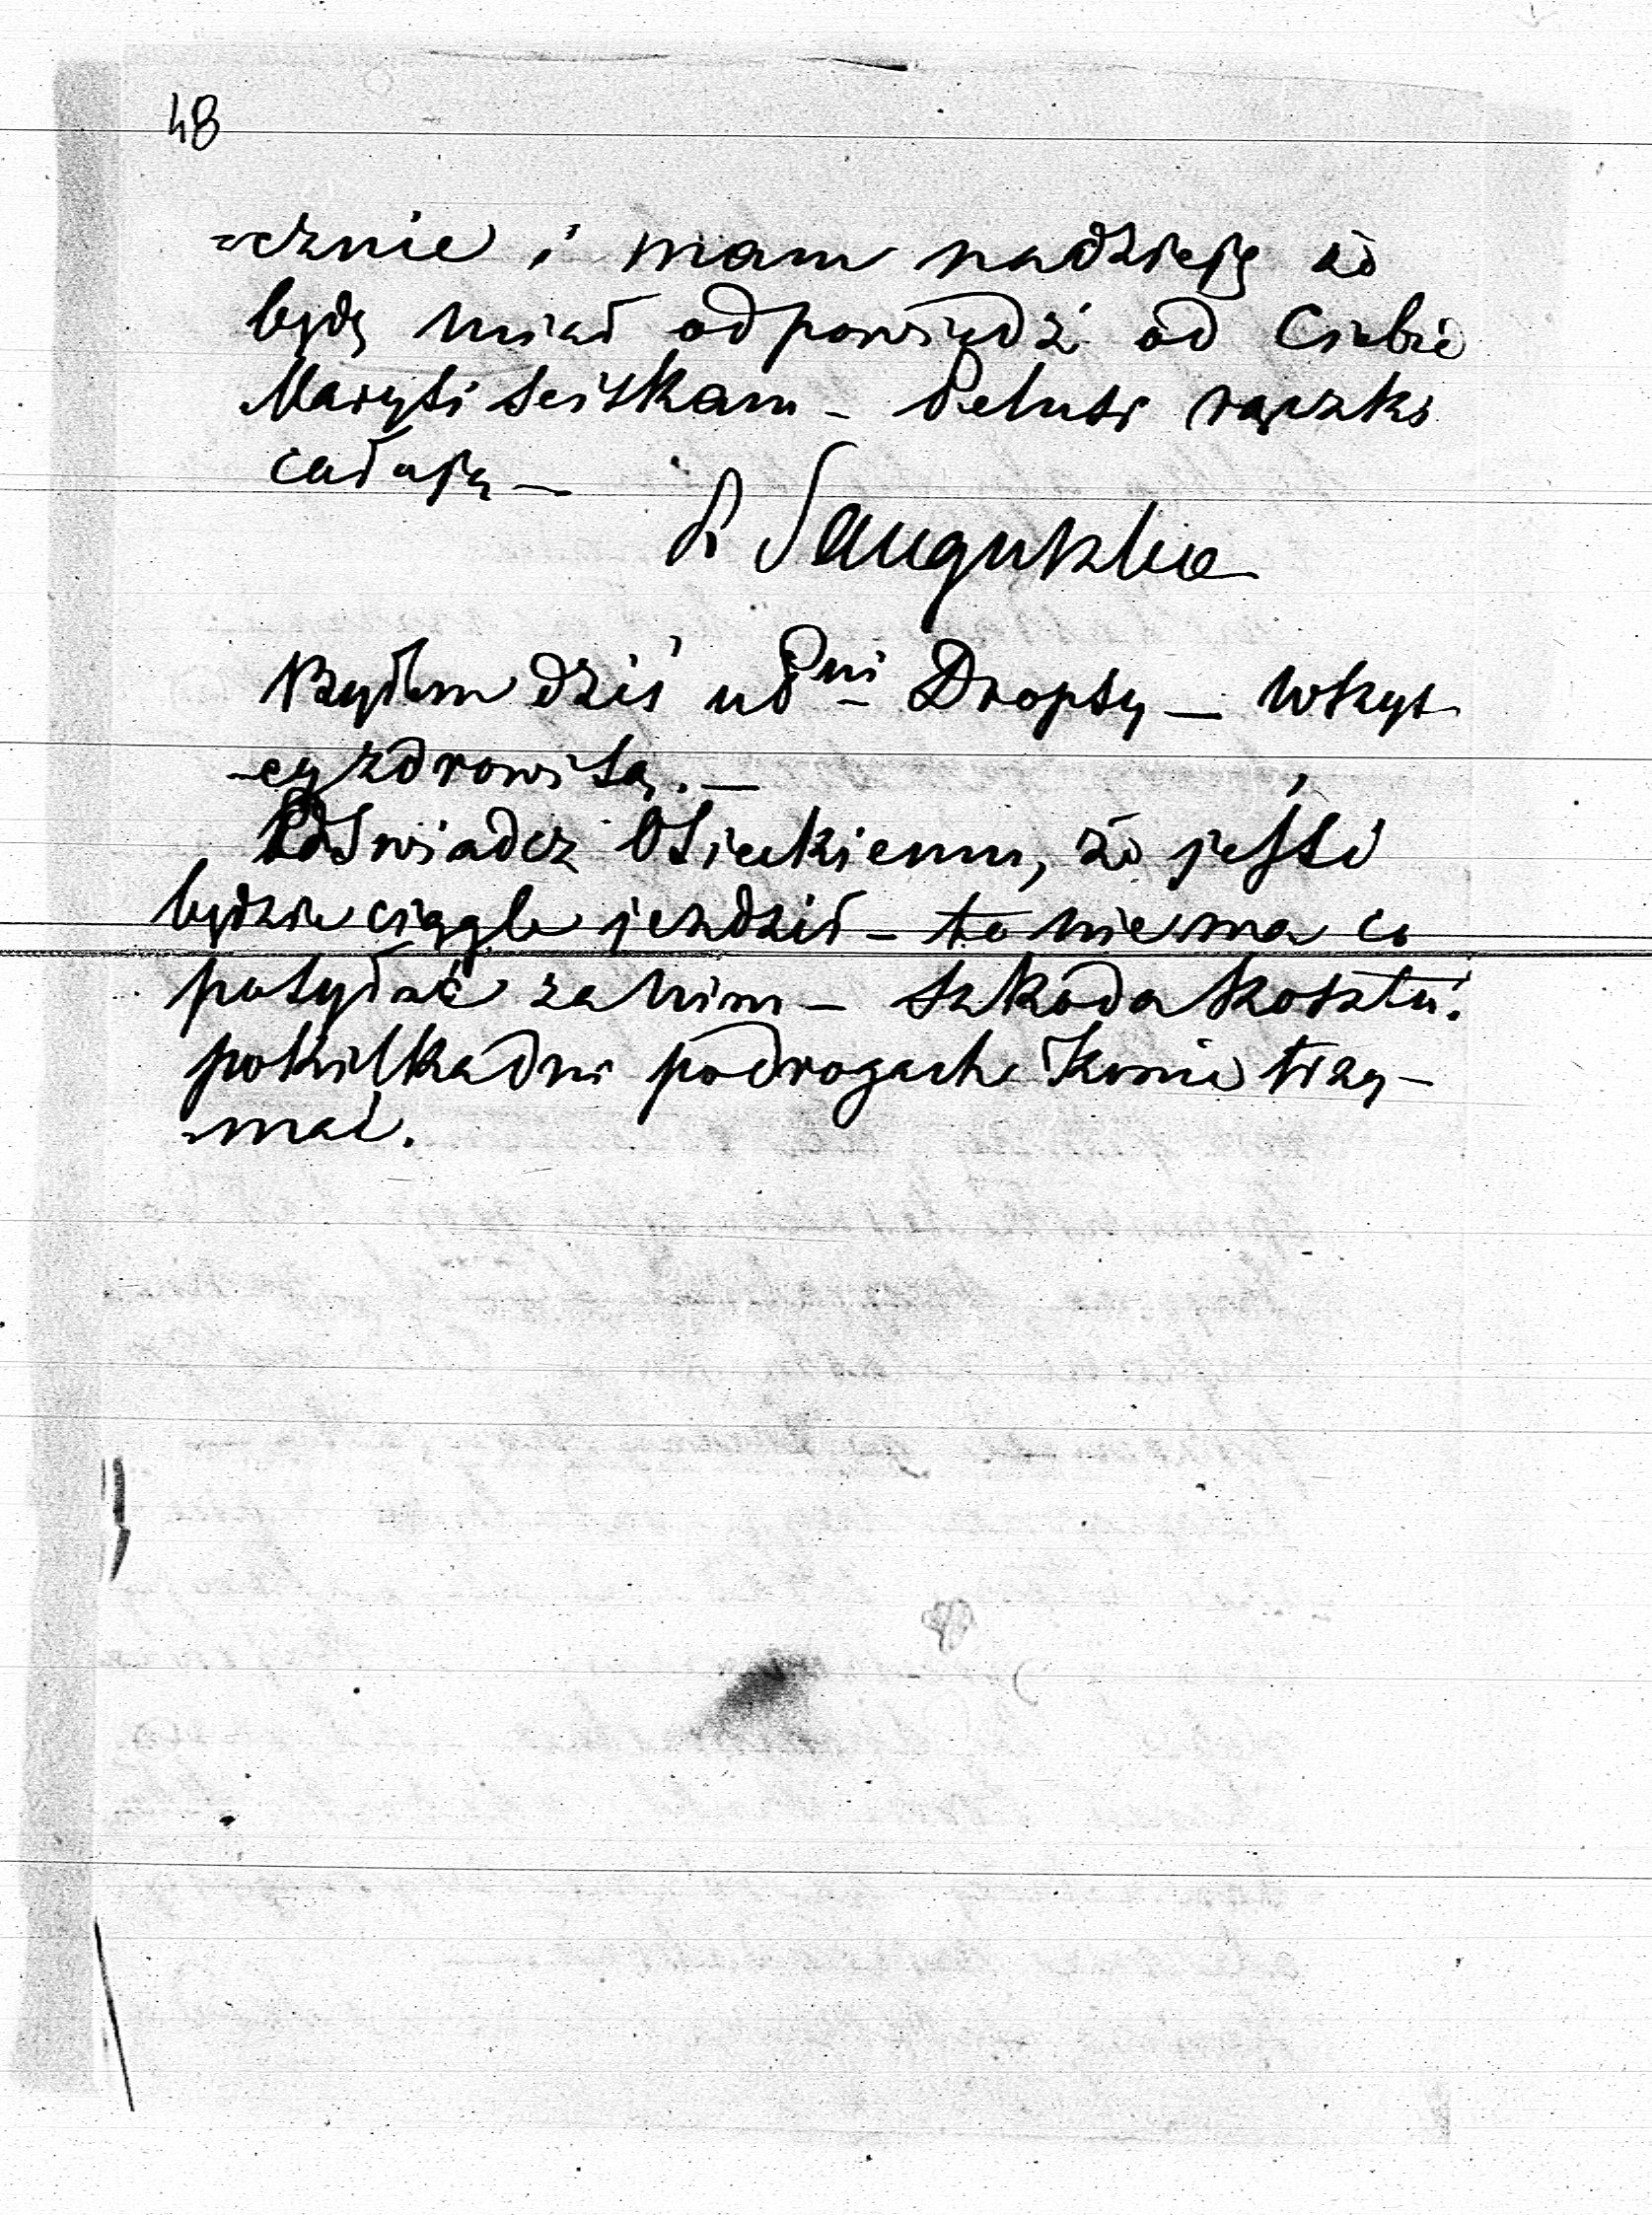 48
-cznie i mam nadzieję że
będę miał odpowiedź od Ciebie
Marysi ściskam - Pelusi rączki
całuję —
R Sanguszko
Byłem dziś u Pni Dropsy — wszys-
-cy zdrowi są. —
Oświadcz Osieckiemu, że jeśli
będzie ciągle jeździł - to nie ma co
posyłać za nim - szkoda kosztu.
po kilka dni po drogach konie trzy-
-mać.